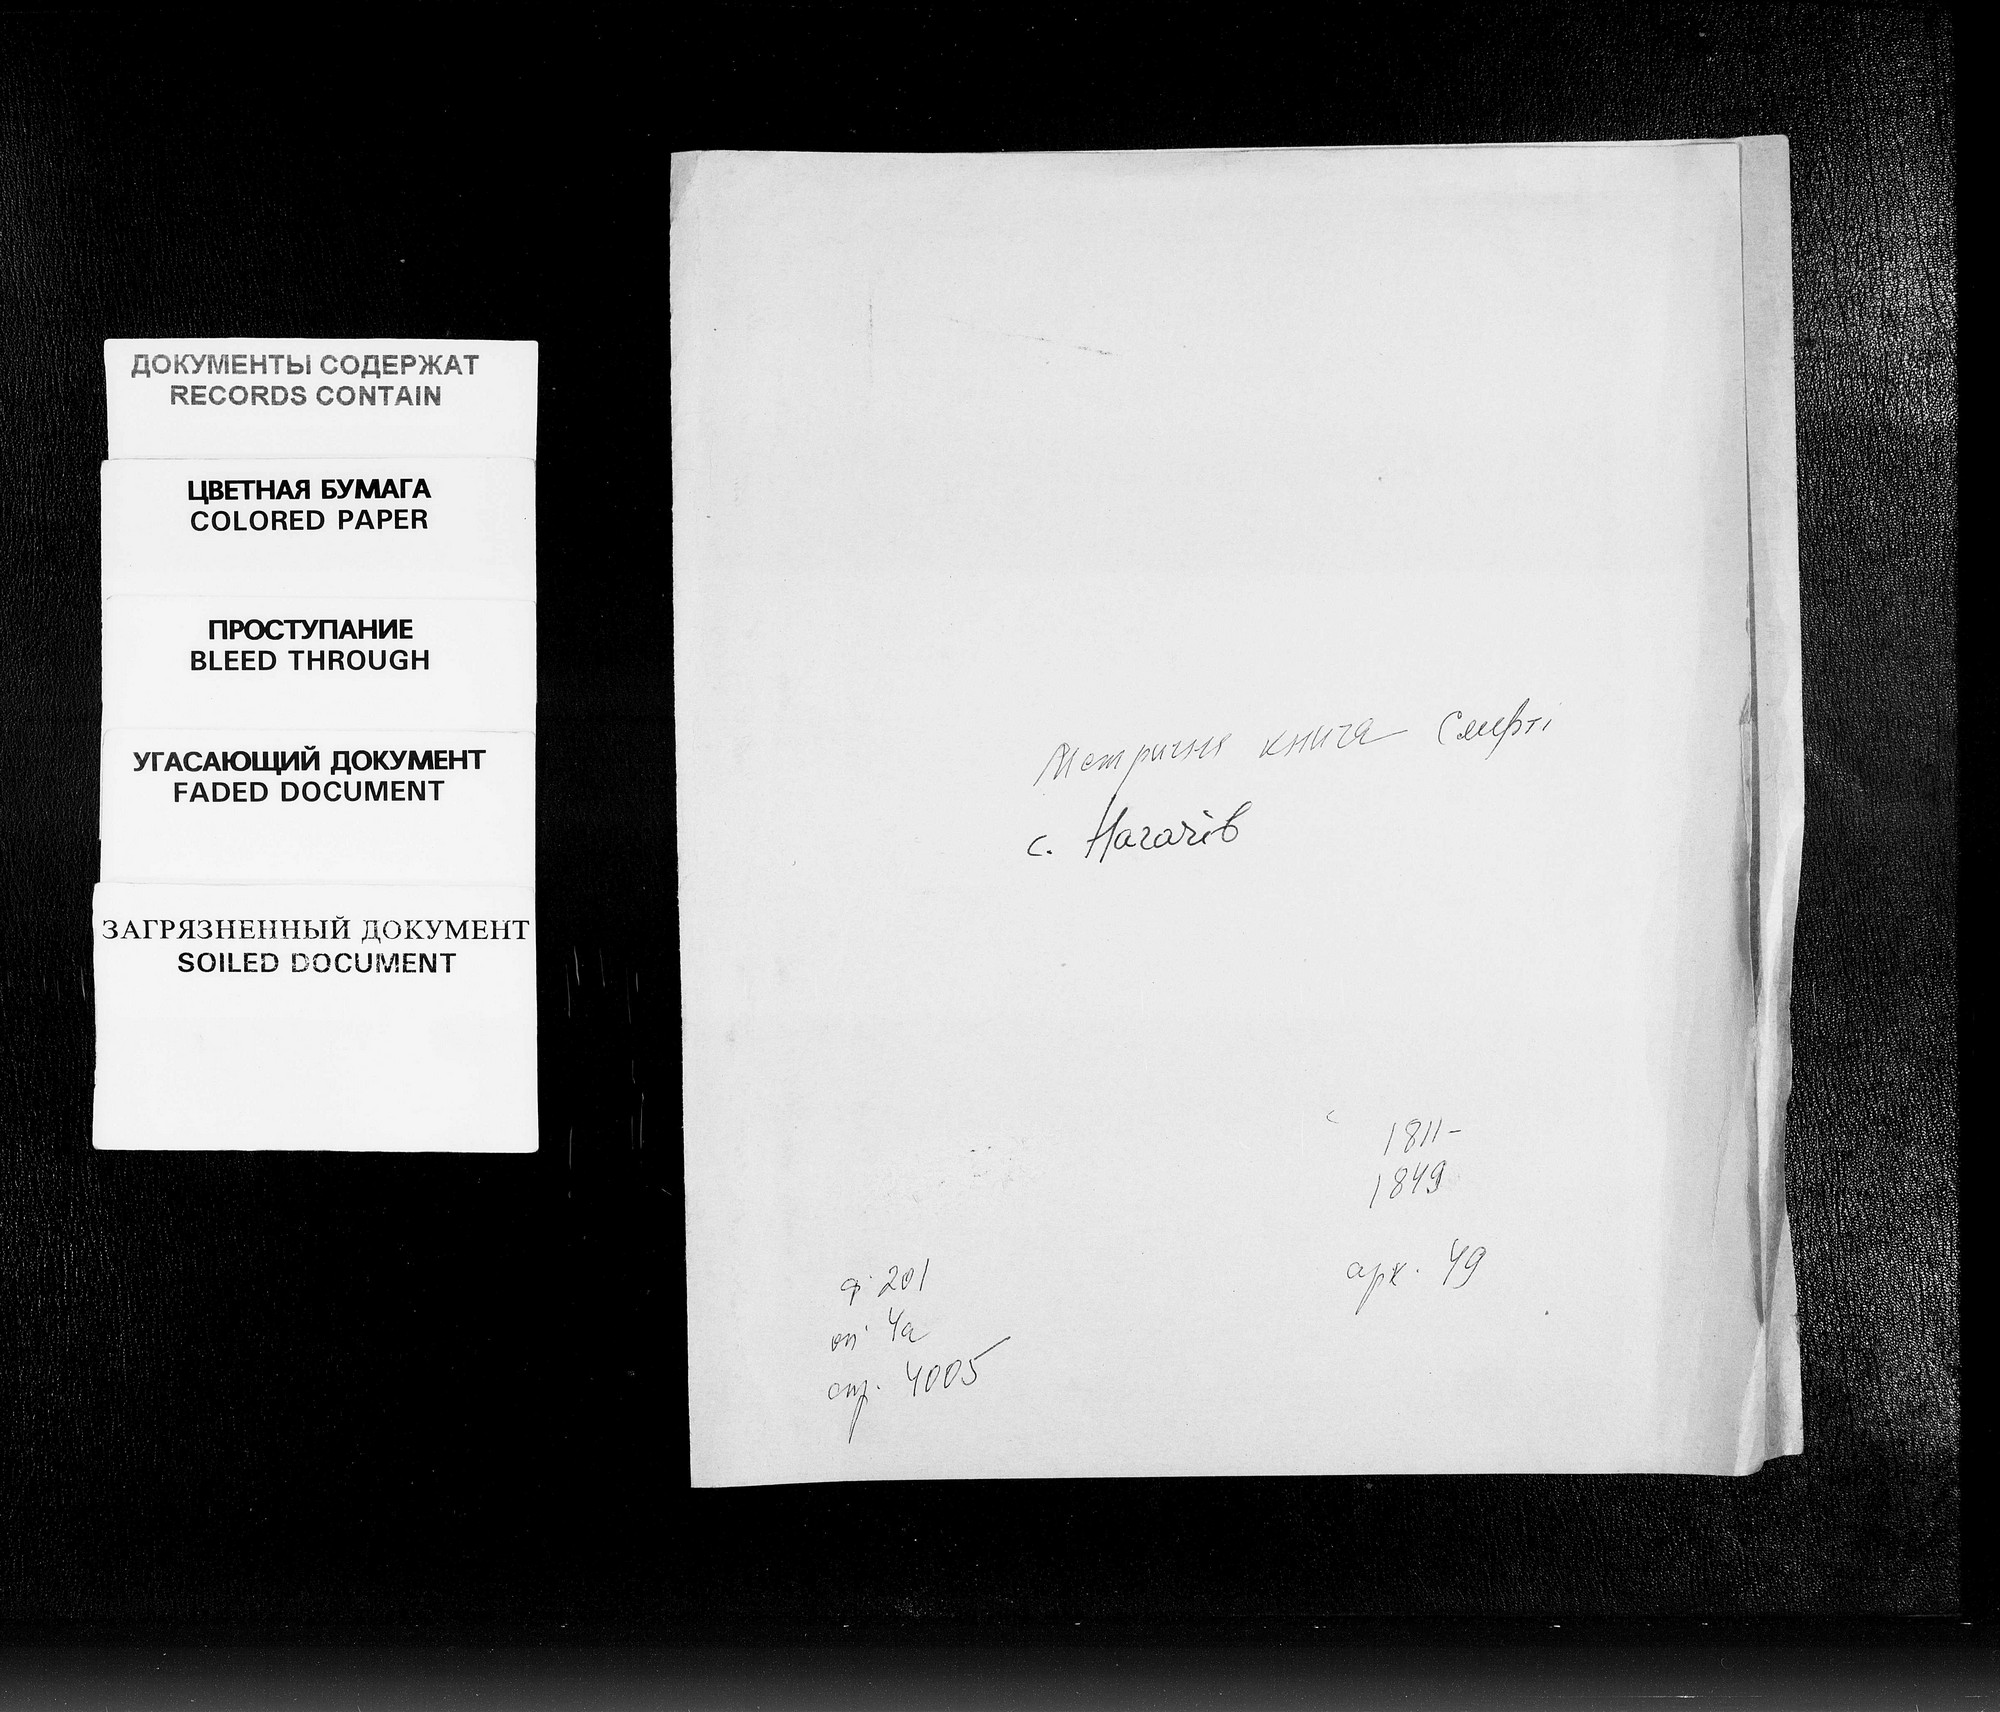 ДОКУМЕНТЫ СОДЕРЖАТ
RECORDS CONTAIN
ЦВЕТНАЯ БУМАГА
COLORED PAPER
ПРОСТУПАНИЕ
BLEED THROUGH
УГАСАЮЩИЙ ДОКУМЕНТ
FADED DOCUMENT
ЗАГРЯЗНЕННЫЙ ДОКУМЕНТ
SOILED DOCUMENT
Метрична книга Смерті
с. Нагачів
1811-
1849
арк. 49
ф. 201
оп. 4а
спр. 4005